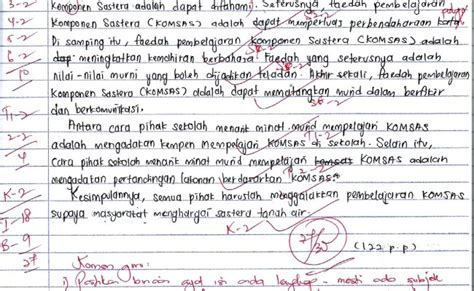 3-2 Komponen Sastera adalah dapat difahami. Seterusnya, faedah pembelajaran
4-2 Komponen Sastera (KOMSAS) adalah dapat memperluas perbendaharaan kata.
5-2 Di samping itu, faedah pembelajaran Komponen Sastera (KOMSAS) adalah
6-2 dap meningkatkan kemahiran berbahasa. Faedah yang seterusnya adalah
10 nilai-nilai murni yang boleh dijadikan teladan. Akhir sekali, faedah pembelajaran
Komponen Sastera (KOMSAS) adalah dapat mematangkan murid dalam berfikir
T1-2 dan berkomunikasi.
Antara cara pihak sekolah menarik minat murid mempelajari KOMSAS
2-2 adalah mengadakan kempen mempelajari KOMSAS di sekolah. Selain itu,
4 Cara pihak sekolah menarik minat murid mempelajari KOMSAS adalah
mengadakan pertandingan lakonan berdasarkan KOMSAS.
K-2 Kesimpulannya, semua pihak haruslah menggalakkan pembelajaran KOMSAS
I-18 supaya masyarakat menghargai sastera tanah air.
K-2
B-9 27/30 (122 p.p)
27 Komen guru:
i) Pastikan binaan ayat isi ada lengkap - mesti ada subjek